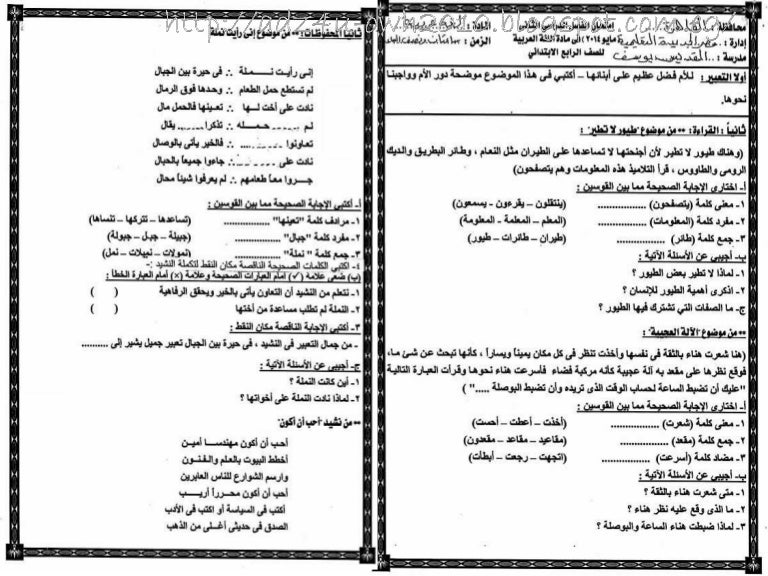 http://adz4u-own2611.blogspot.com.eg
محافظة :
إدارة : مصر الجديدة التعليمية
مدرسة : القديس يوسف
(مايو ٢٠١٤) في مادة اللغة العربية
للصف الرابع الابتدائي
الزمن :
أولا التعبير : للأم فضل عظيم على أبنائها – أكتبي فى هذا الموضوع موضحة دور الأم وواجبنا
نحوها.
ثانياً : القراءة : ** من موضوع "طيور لا تطير" :
(وهناك طيور لا تطير لأن أجنحتها لا تساعدها على الطيران مثل النعام ، وطائر البطريق والديك
الرومى والطاووس ، قرأ التلاميذ هذه المعلومات وهم يتصفحون)
أ- اختارى الإجابة الصحيحة مما بين القوسين :
١- معنى كلمة (يتصفحون) ................. (ينتقلون – يقرءون - يسمعون)
٢- مفرد كلمة (المعلومات) ................. (المعلم – المعلمة - المعلومة)
٣- جمع كلمة (طائر) ................. (طيران – طائرات – طيور)
ب- أجيبى عن الأسئلة الآتية :
١- لماذا لا تطير بعض الطيور ؟
٢- اذكرى أهمية الطيور للإنسان ؟
ج- ما الصفات التي تشترك فيها الطيور ؟
** من موضوع "الآلة العجيبة"
(هنا شعرت هناء بالثقة فى نفسها وأخذت تنظر فى كل مكان يميناً ويساراً ، كأنها تبحث عن شئ ما،
فوقع نظرها على مقعد به آلة عجيبة كأنه مركبة فضاء فأسرعت هناء نحوها وقرأت العبارة التالية
"عليك أن تضبط الساعة لحساب الوقت الذى تريده وأن تضبط البوصلة ....." )
أ- اختارى الإجابة الصحيحة مما بين القوسين :
١- معنى كلمة (شعرت) ................. (أخذت – أعطت – أحست)
٢- جمع كلمة (مقعد) ................. (مقاعيد – مقاعد – مقعدون)
٣- مضاد كلمة (أسرعت) ................. (اتجهت – رجعت – أبطأت)
ب- أجيبى عن الأسئلة الآتية :
١- متى شعرت هناء بالثقة ؟
٢- ما الذى وقع عليه نظر هناء ؟
٣- لماذا ضبطت هناء الساعة والبوصلة ؟
ثانياً المحفوظات : ** من موضوع إنى رأيت نملة
إنى رأيـت نـمـلـة ∴ فى حيرة بين الجبال
لم تستطع حمل الطعام ∴ وحدها فوق الرمال
نادت على أخت لـهـا ∴ تعـينها فالحمل مال
لـم ....... حـمـلـه ∴ تذكرا ....... يقال
تعاونوا ............ ∴ فالخير يأتى بالوصال
نادت على .......... ∴ جاءوا جميعاً بالحبال
جـروا معـاً طعامهم ∴ لم يعرفوا شيئاً محال
أ- أكتبى الإجابة الصحيحة مما بين القوسين :
١- مرادف كلمة "تعينها" ................. (تساعدها – تتركها – تنساها)
٢- مفرد كلمة "جبال" ................. (جبيلة – جبل – جبولة)
٣- جمع كلمة " نملة" ................. (نمولات – نميلات – نمل)
٤- اكتبى الكلمات الصحيحة الناقصة مكان النقط لتكملة النشيد :-
(ب) ضعى علامة (✓) أمام العبارات الصحيحة وعلامة (×) أمام العبارة الخطأ :
١- نتعلم من النشيد أن التعاون يأتى بالخير ويحقق الرفاهية ( )
٢- النملة لم تطلب مساعدة من أختها ( )
٣- أكتبى الإجابة الناقصة مكان النقط :
- من جمال التعبير فى النشيد ، فى حيرة بين الجبال تعبير جميل يشير إلى ..........
ج- أجيبى عن الأسئلة الآتية :
١- أين كانت النملة ؟
٢- لماذا نادت النملة على أخواتها ؟
** من نشيد "أحب أن أكون"
أحب أن أكون مهندســا أمين
أخطط البيوت بالعلم والفـنـون
وارسم الشوارع للناس العابرين
أحب أن أكون محـرراً أريــب
أكتب فى السياسة أو اكتب فى الأدب
الصدق فى حديثى أغلـى من الذهب